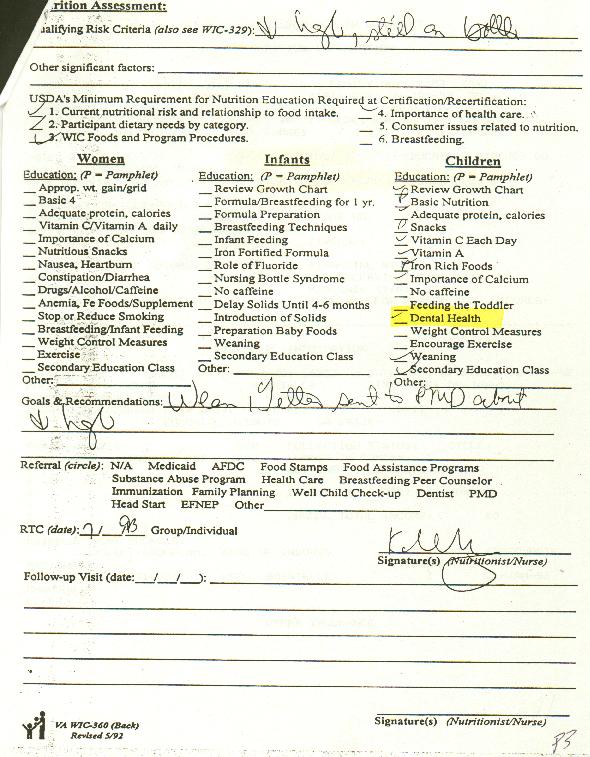 rition Assessment:
alifying Risk Criteria (also see WIC-329): ↓ hgb, still on bottle
Other significant factors:
USDA's Minimum Requirement for Nutrition Education Required at Certification/Recertification:
✓ 1. Current nutritional risk and relationship to food intake. ✓ 4. Importance of health care.
✓ 2. Participant dietary needs by category. __ 5. Consumer issues related to nutrition.
✓ 3. WIC Foods and Program Procedures. __ 6. Breastfeeding.
Women
Education: (P = Pamphlet)
__ Approp. wt. gain/grid
__ Basic 4
__ Adequate protein, calories
__ Vitamin C/Vitamin A daily
__ Importance of Calcium
__ Nutritious Snacks
__ Nausea, Heartburn
__ Constipation/Diarrhea
__ Drugs/Alcohol/Caffeine
__ Anemia, Fe Foods/Supplement
__ Stop or Reduce Smoking
__ Breastfeeding/Infant Feeding
__ Weight Control Measures
__ Exercise
__ Secondary Education Class
Other:
Infants
Education: (P = Pamphlet)
__ Review Growth Chart
__ Formula/Breastfeeding for 1 yr.
__ Formula Preparation
__ Breastfeeding Techniques
__ Infant Feeding
__ Iron Fortified Formula
__ Role of Fluoride
__ Nursing Bottle Syndrome
__ No caffeine
__ Delay Solids Until 4-6 months
__ Introduction of Solids
__ Preparation Baby Foods
__ Weaning
__ Secondary Education Class
Other:
Children
Education: (P = Pamphlet)
Review Growth Chart
P Basic Nutrition
Adequate protein, calories
P Snacks
✓ Vitamin C Each Day
✓ Vitamin A
P Iron Rich Foods
✓ Importance of Calcium
__ No caffeine
__ Feeding the Toddler
✓ Dental Health
__ Weight Control Measures
__ Encourage Exercise
✓ Weaning
✓ Secondary Education Class
Other:
Goals & Recommendations: Wean, letter sent to PMD about
↓ hgb
Referral (circle): N/A Medicaid AFDC Food Stamps Food Assistance Programs
Substance Abuse Program Health Care Breastfeeding Peer Counselor
Immunization Family Planning Well Child Check-up Dentist PMD
Head Start EFNEP Other
RTC (date): 7/ 93 Group/Individual
Signature(s) (Nutritionist/Nurse)
Follow-up Visit (date: __/__/__):
VA WIC-360 (Back)
Revised 5/92
Signature(s) (Nutritionist/Nurse)
P3